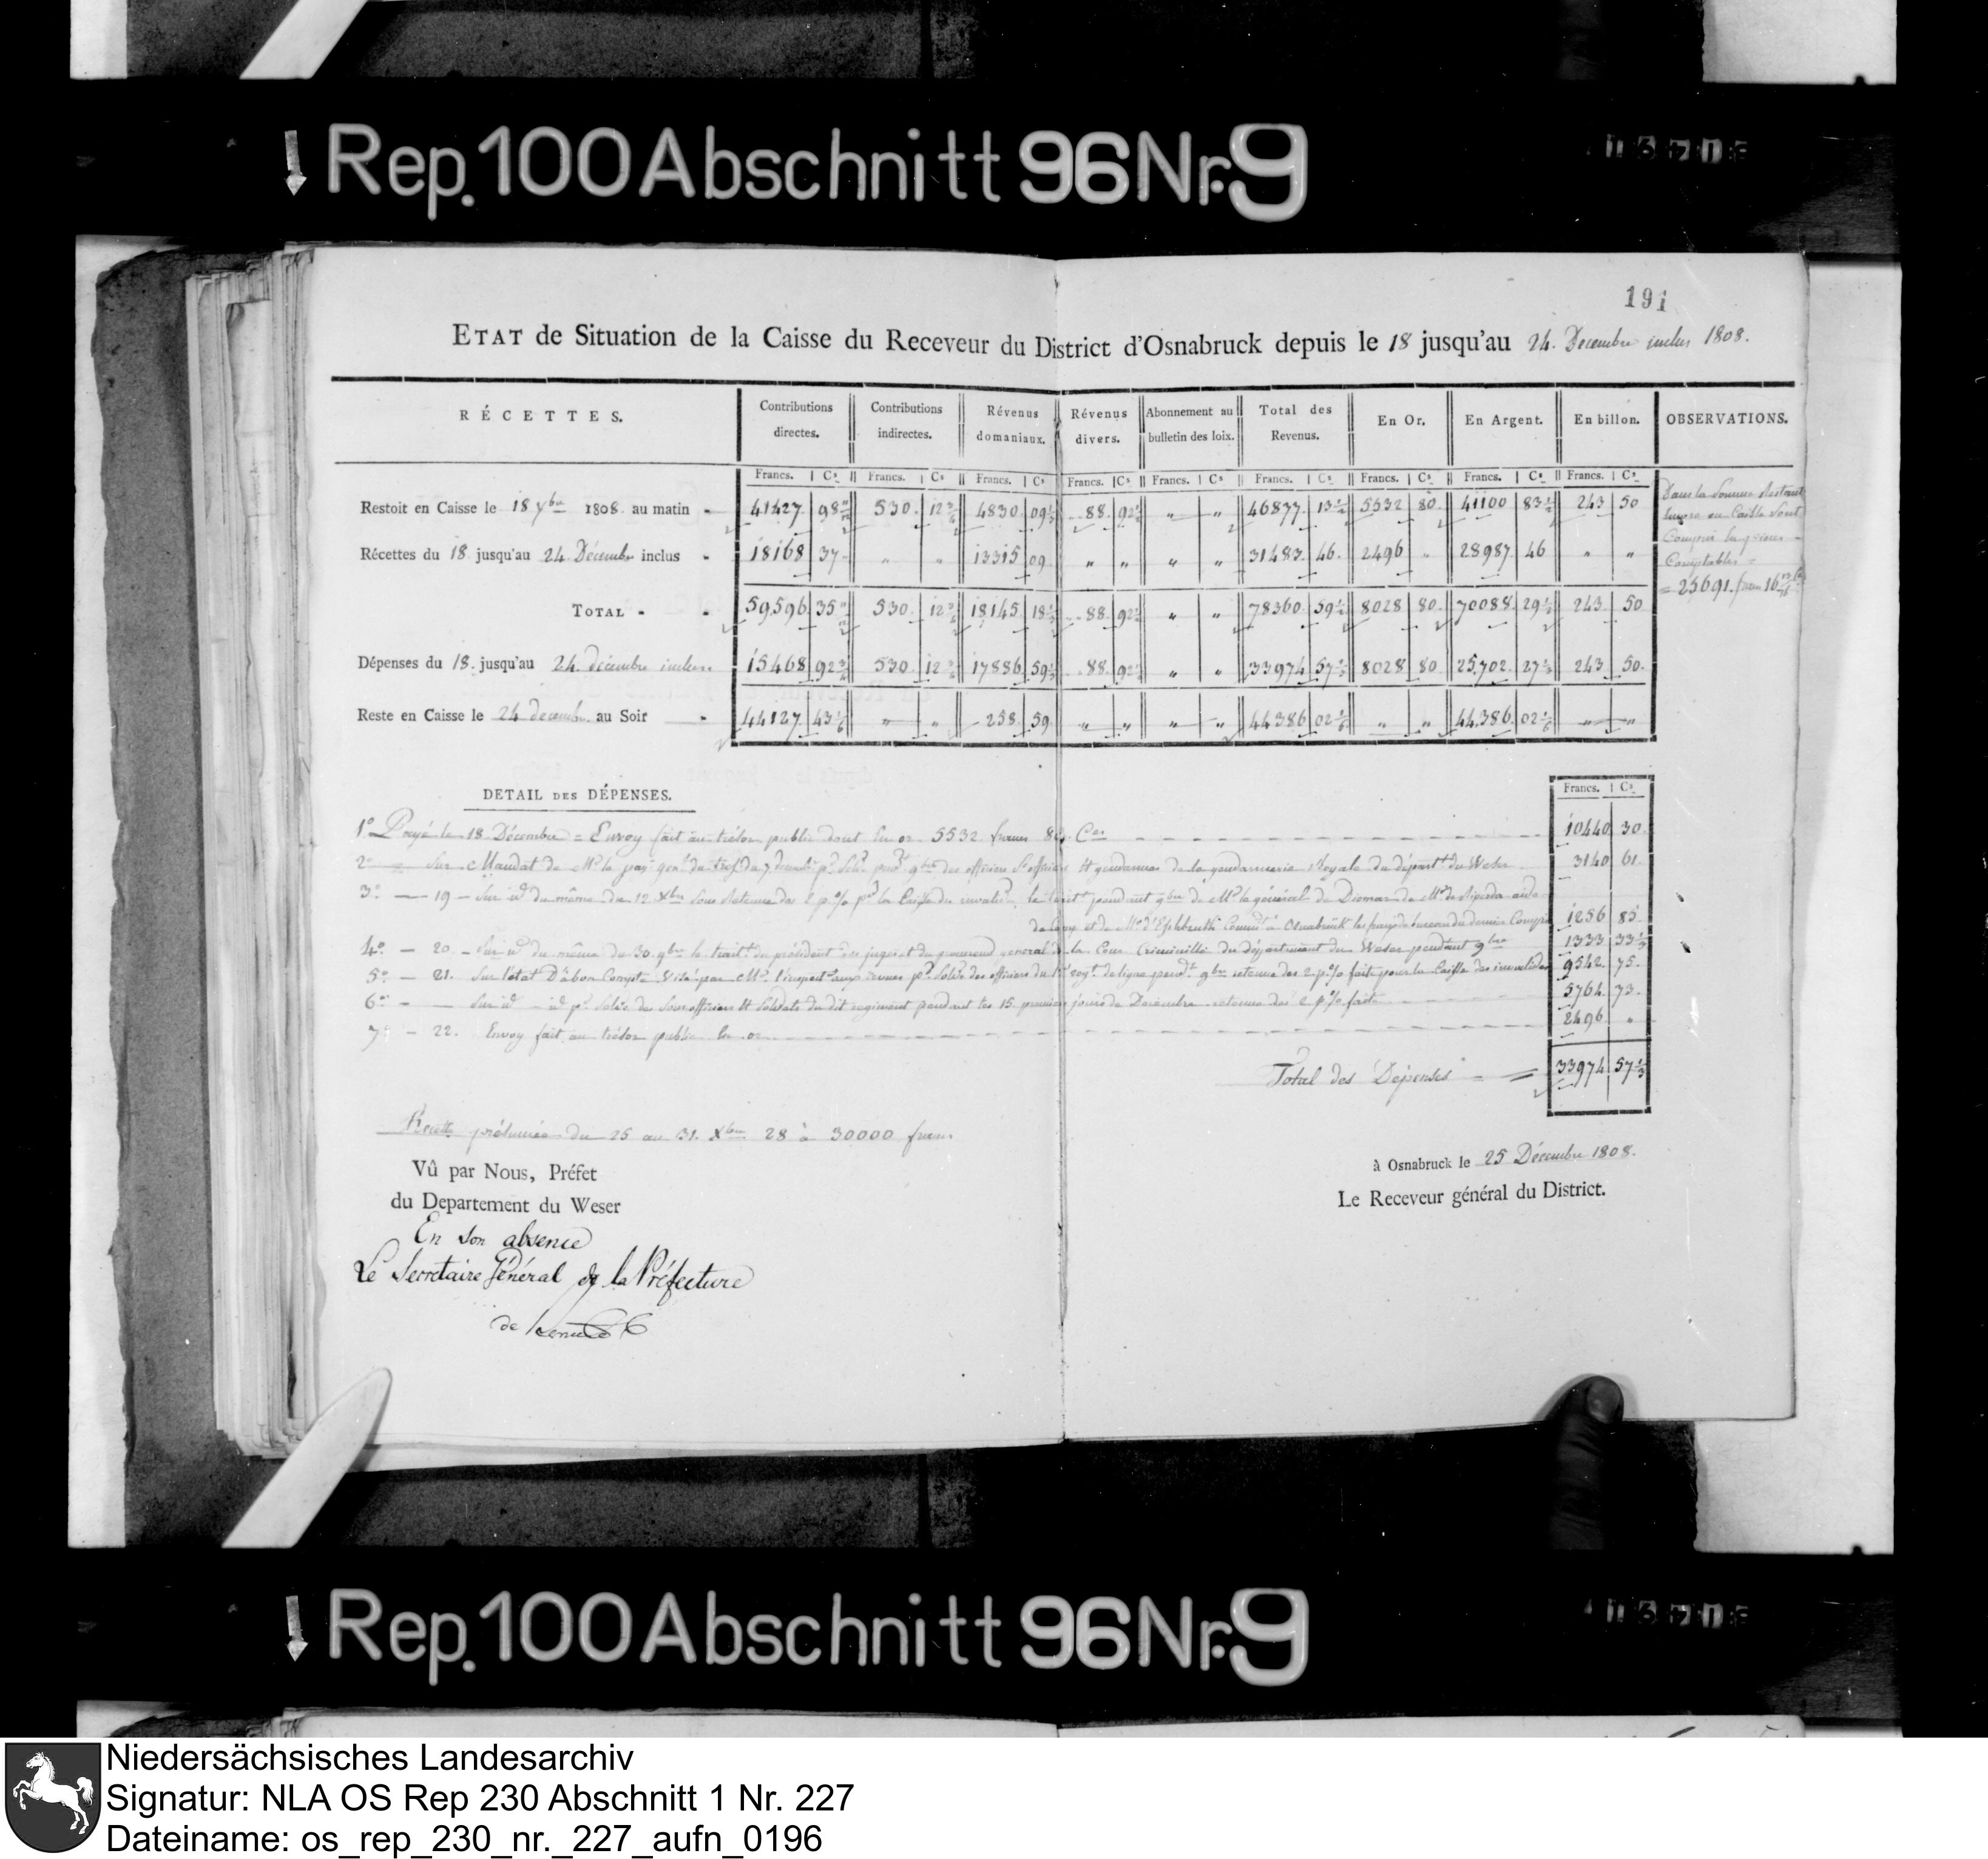 Rep. 100 Abschnitt 96 Nr. 9
191
ETAT de Situation de la Caisse du Receveur du District d'Osnabruck depuis le 18 jusqu'au 24. Decembre inclus 1808.
RÉCETTES. Contributions directes. Contributions indirectes. Révenus domaniaux. Révenus divers. Abonnement au bulletin des loix. Total des Revenus. En Or. En Argent. En billon. OBSERVATIONS.
Francs. Cs Francs. Cs Francs. Cs Francs. Cs Francs. Cs Francs. Cs Francs. Cs Francs. Cs Francs. Cs
Restoit en Caisse le 18 Xbre 1808 au matin - 41427 98 530. 12 4830 09 88. 92 " " 46877. 13 5532 80. 41100 83 243 50
Récettes du 18. jusqu'au 24. Décembre inclus - 18168 37 " " 13315 09 " " " " 31483. 46. 2496 " 28987 46 " "
TOTAL - - 59596 35 530. 12 18145 18 88. 92 " " 78360. 59 8028 80. 70088 29 243 50
Dépenses du 18. jusqu'au 24. décembre inclus. 15468 92 530. 12 17886 59 88. 92 " " 33974 57 1/3 8028 80 25,702. 27 243. 50.
Reste en Caisse le 24 decembre au Soir - 44127 43 1/6 " " 258. 59 " " " " 44386 02 1/6 " " 44,386. 02 1/6 " "
Dans la Somme
en Caisse Sont
Compris les pieces
Comptables =
= 25691. francs 16
DETAIL DES DÉPENSES.
Francs. Cs
1º Payé le 18 Décembre = Envoy fait au trésor public dont en or 5532 francs 80. Ces 10440 30.
2º Sur Mandat de Mr le du 7 9bre des officiers gendarmes de la gendarmerie Royale du départt du Weser 3140 61.
3º — 19 — Sur id du même du 12 Xbre Sous Retenue des 2 p% pr la Caisse des pendant 9bre de Mr le général de de Mr de
de Camp et de Mr Commt à Osnabrück les frais de bureau du dernier Compris 1256 85
4º — 20. — Sur id du même du 30. 9bre le traitt du président des juges et du procureur general de la Cour Criminelle du département du Weser pendant 9bre 1333 33 1/3
5º — 21. Sur l'état D'àbon Compte Visé par Mr l'inspectr aux revues pr Solde des officiers du 1er regt de ligne pendt 9bre retenue des 2 p% fait pour la Caisse des invalides 9542 75.
6º — — Sur id — id pr Solde des Sous officiers et Soldats du dit regiment pendant les 15 premiers jours de Decembre retenue des 2 p% fait 5764 73.
7º — 22. Envoy fait au trésor public en or 2496 "
Total des Dépenses = 33974 57 1/3
Recette présumée du 25 au 31. Xbre 28 à 30000 francs
Vû par Nous, Préfet
du Departement du Weser
En son absence
Le Secretaire Général de la Préfecture
à Osnabruck le 25 Décembre 1808.
Le Receveur général du District.
Rep. 100 Abschnitt 96 Nr. 9
Niedersächsisches Landesarchiv
Signatur: NLA OS Rep 230 Abschnitt 1 Nr. 227
Dateiname: os_rep_230_nr._227_aufn_0196